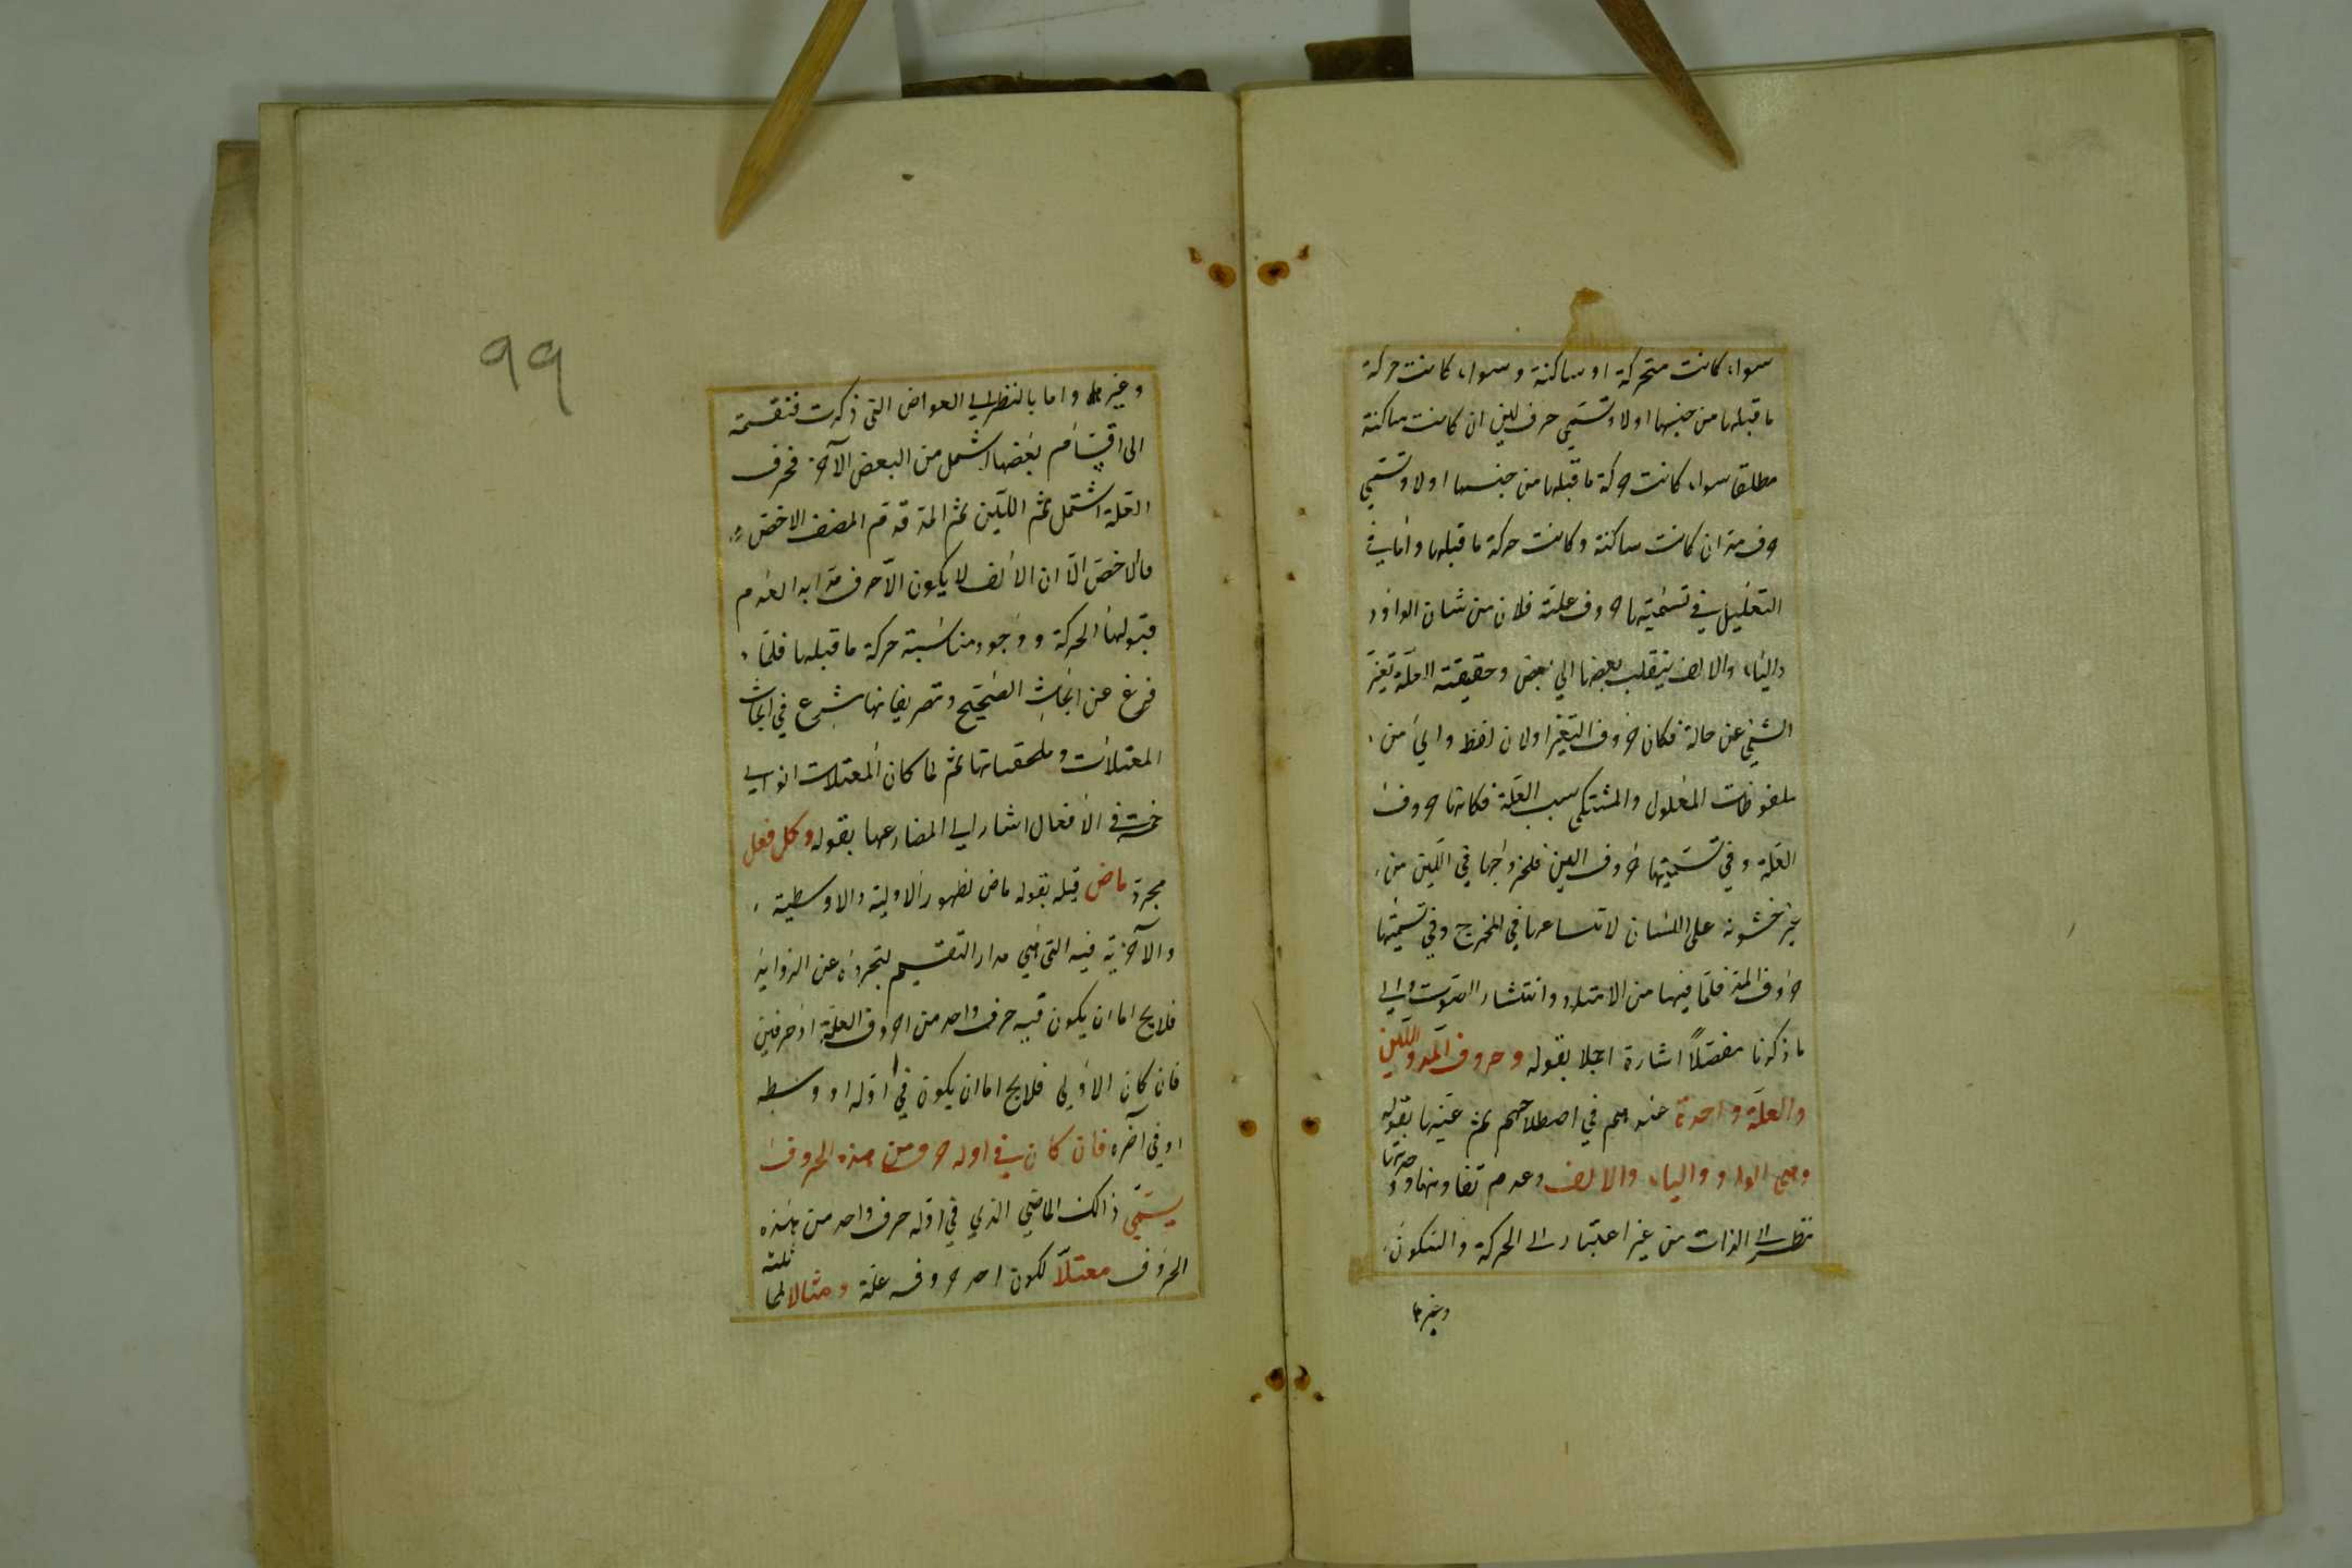 سواء كانت متحركة او ساكنة وسواء كانت حركة
ما قبلها من جنسها او لا وتسمي حرف لين ان كانت ساكنة
مطلقا سواء كانت حركة ما قبلها من جنسها او لا وتسمي
حرف مد ان كانت ساكنة وكانت حركة ما قبلها واما في
التعليل في تسميتها حروف علة فلان من شان الواو و
والياء والالف ينقلب بعضها الي بعض وحقيقة العلة تغير
الشئ عن حاله فكان حروف التغير او لان لفظ واي من
ملفوظات المعلول والمشتكي بسبب العلة فكانها حروف
العلة وفي تسميتها حروف اللين فلخروجها في اللين من
غير خشونة على اللسان لاتساعها في المخرج وفي تسميتها
حروف المد فلما فيها من الامتداد وانتشار الصوت والي
ما ذكرنا مفصلاً اشارة اجلا بقوله وحروف المد واللين
والعلة واحدة عندهم في اصطلاحهم ثم عينها بقوله
وهي الواو والياء والالف وعدم تفاوتها و وحدتها
نظرا الي الذات من غير اعتبار الى الحركة والسكون
وغيرها
99
وغيرها واما بالنظر الي العوارض التي ذكرت فتقسمة
الى اقسام بعضها اشمل من البعض الآخر فحرف
العلة اشتمل ثم اللين ثم المد قدم المصنف الاخص
فالاخص الا ان الالف لا يكون الا حرف مد ابدا لعدم
قبولها الحركة ووجود مناسبة حركة ما قبلها فلما
فرغ عن ابحاث الصحيح وتصريفاتها شرع في ابحاث
المعتلات وملحقياتها ثم لما كان المعتلات انواعي
خمسة في الافعال اشار الي المضارعها بقوله وكل فعل
مجرد ماض قيله بقوله ماض لظهور الاولية والاوسطية
والآخرية فيه التي هي مدار التقسيم لتجرده عن الزوايد
فلا يخ اما ان يكون فيه حرف واحد من احروف العلة او حرفين
فان كان الاولي فلا يخ اما ان يكون في اوله او وسطه
او في آخره فان كان في اوله حرف من هذه الحروف
يسمي ذالك الماضي الذي في اوله حرف واحد من هذه
الحروف ثلثة معتلاً لكون احد حروفه علة ومثالا لما